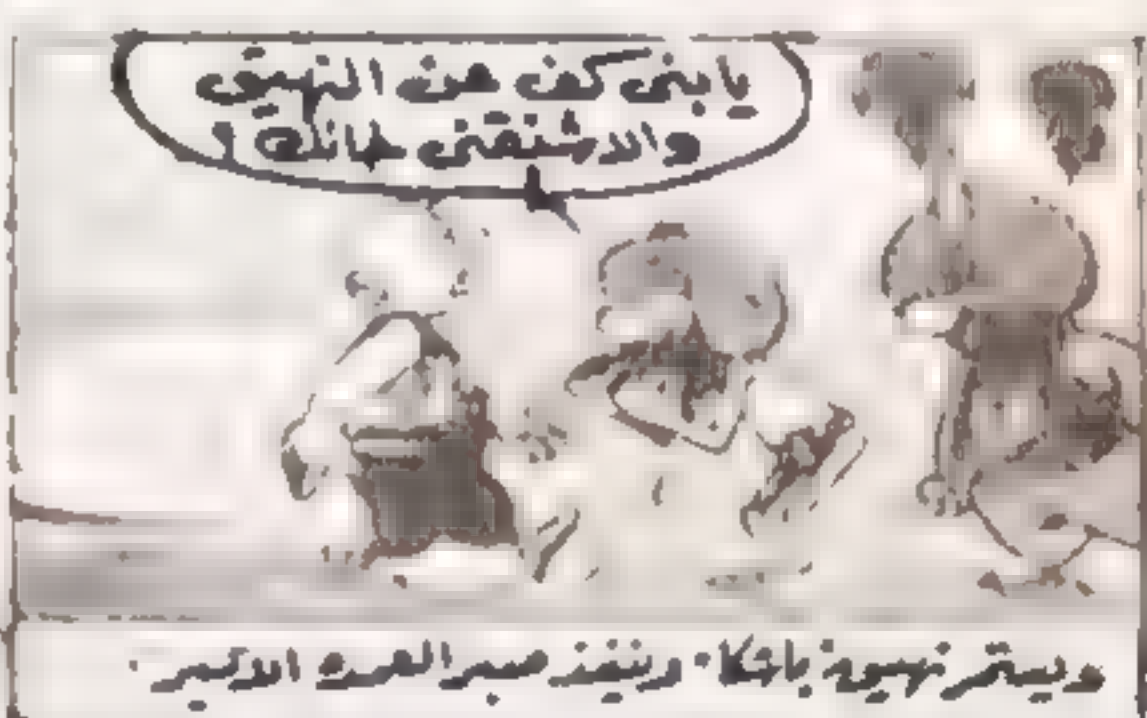 يا بنى كف عن النهيق
والا شنقتى مكانك !
ويستمر نهيق باشكا. وينفذ صبر العمدة الاكبر.